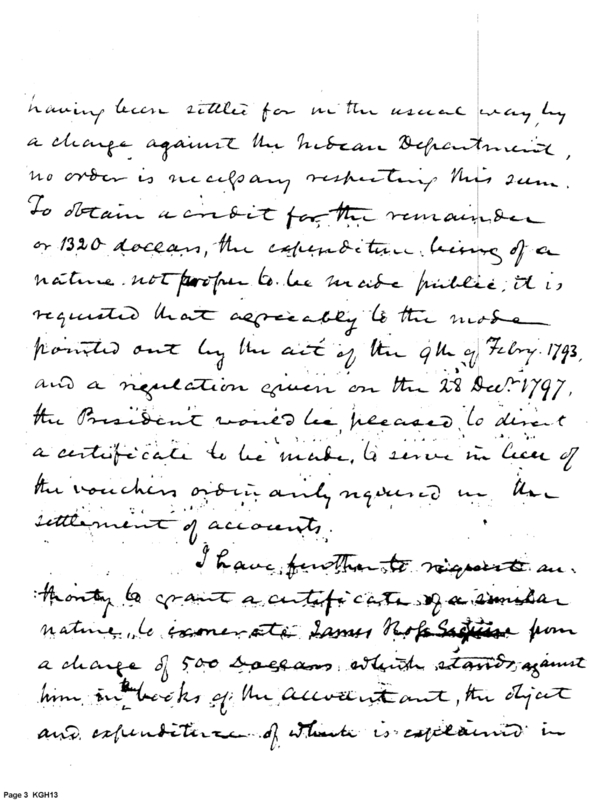 having been settled for in the usual way, by
a charge against the Indian Department,
no order is necessary respecting this sum.
To obtain a credit for the remainder
or 1320 dollars, the expenditure being of a
nature not proper to be made public, it is
requested that agreeably to the mode
pointed out by the act of the 9th of Febry. 1793,
and a regulation given on the 28 Decr. 1797,
the President would be pleased to direct
a certificate to be made, to serve in lieu of
the vouchers ordinarily required in the
settlement of accounts.
I have further to request au-
thority to grant a certificate of a similar
nature, to exonerate James Ross Esquire from
a charge of 500 Dollars which stands against
him in the books of the accountant, the object
and expenditure of which is explained in
Page 3 KGH13